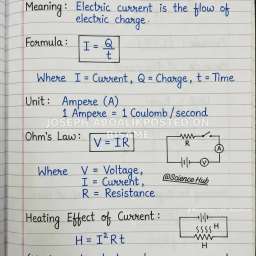 Meaning: Electric current is the flow of
electric charge.
Formula: I = Q/t
Where I = Current, Q = Charge, t = Time
Unit: Ampere (A)
1 Ampere = 1 Coulomb/second
JOSEPH ATO ALIK POSTED ON
Ohm's Law: V = IR
R
A
V
Where V = Voltage,
I = Current,
R = Resistance
@Science Hub
Heating Effect of Current:
H
H = I²Rt
H